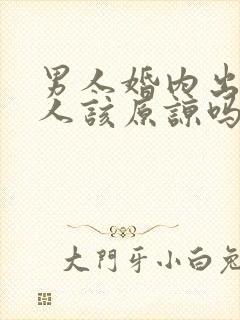 男人婚内出
人該原諒吗
大門牙小白兔